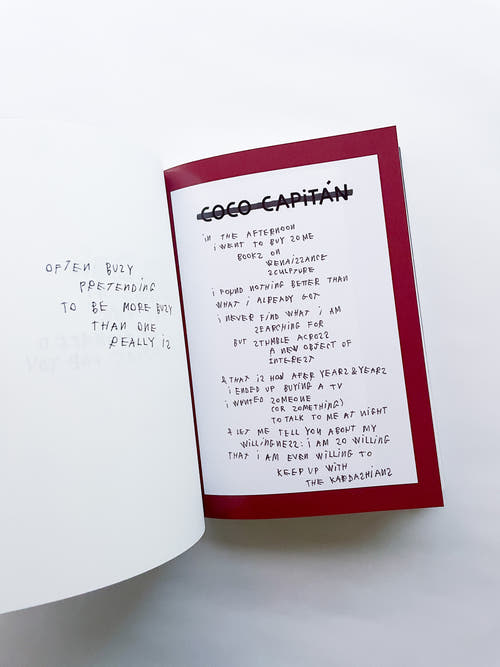 OFTEN BUSY
PRETENDiNG
TO BE MORE BUSY
THAN ONE
REALLY iS
COCO CAPiTÁN
iN THE AFTERNOON
i WENT TO BUY SOME
BOOKS ON
RENAiSSANCE
SCULPTURE
i FOUND NOTHiNG BETTER THAN
WHAT i ALREADY GOT
i NEVER FiND WHAT i AM
SEARCHiNG FOR
BUT STUMBLE ACROSS
A NEW OBJECT OF
iNTEREST
& THAT iS HOW AFTER YEARS & YEARS
i ENDED UP BUYiNG A TV
i WANTED SOMEONE
(OR SOMETHiNG)
TO TALK TO ME AT NiGHT
& LET ME TELL YOU ABOUT MY
WiLLiNGNESS: i AM SO WiLLiNG
THAT i AM EVEN WiLLiNG TO
KEEP UP WiTH
THE KARDASHiANS